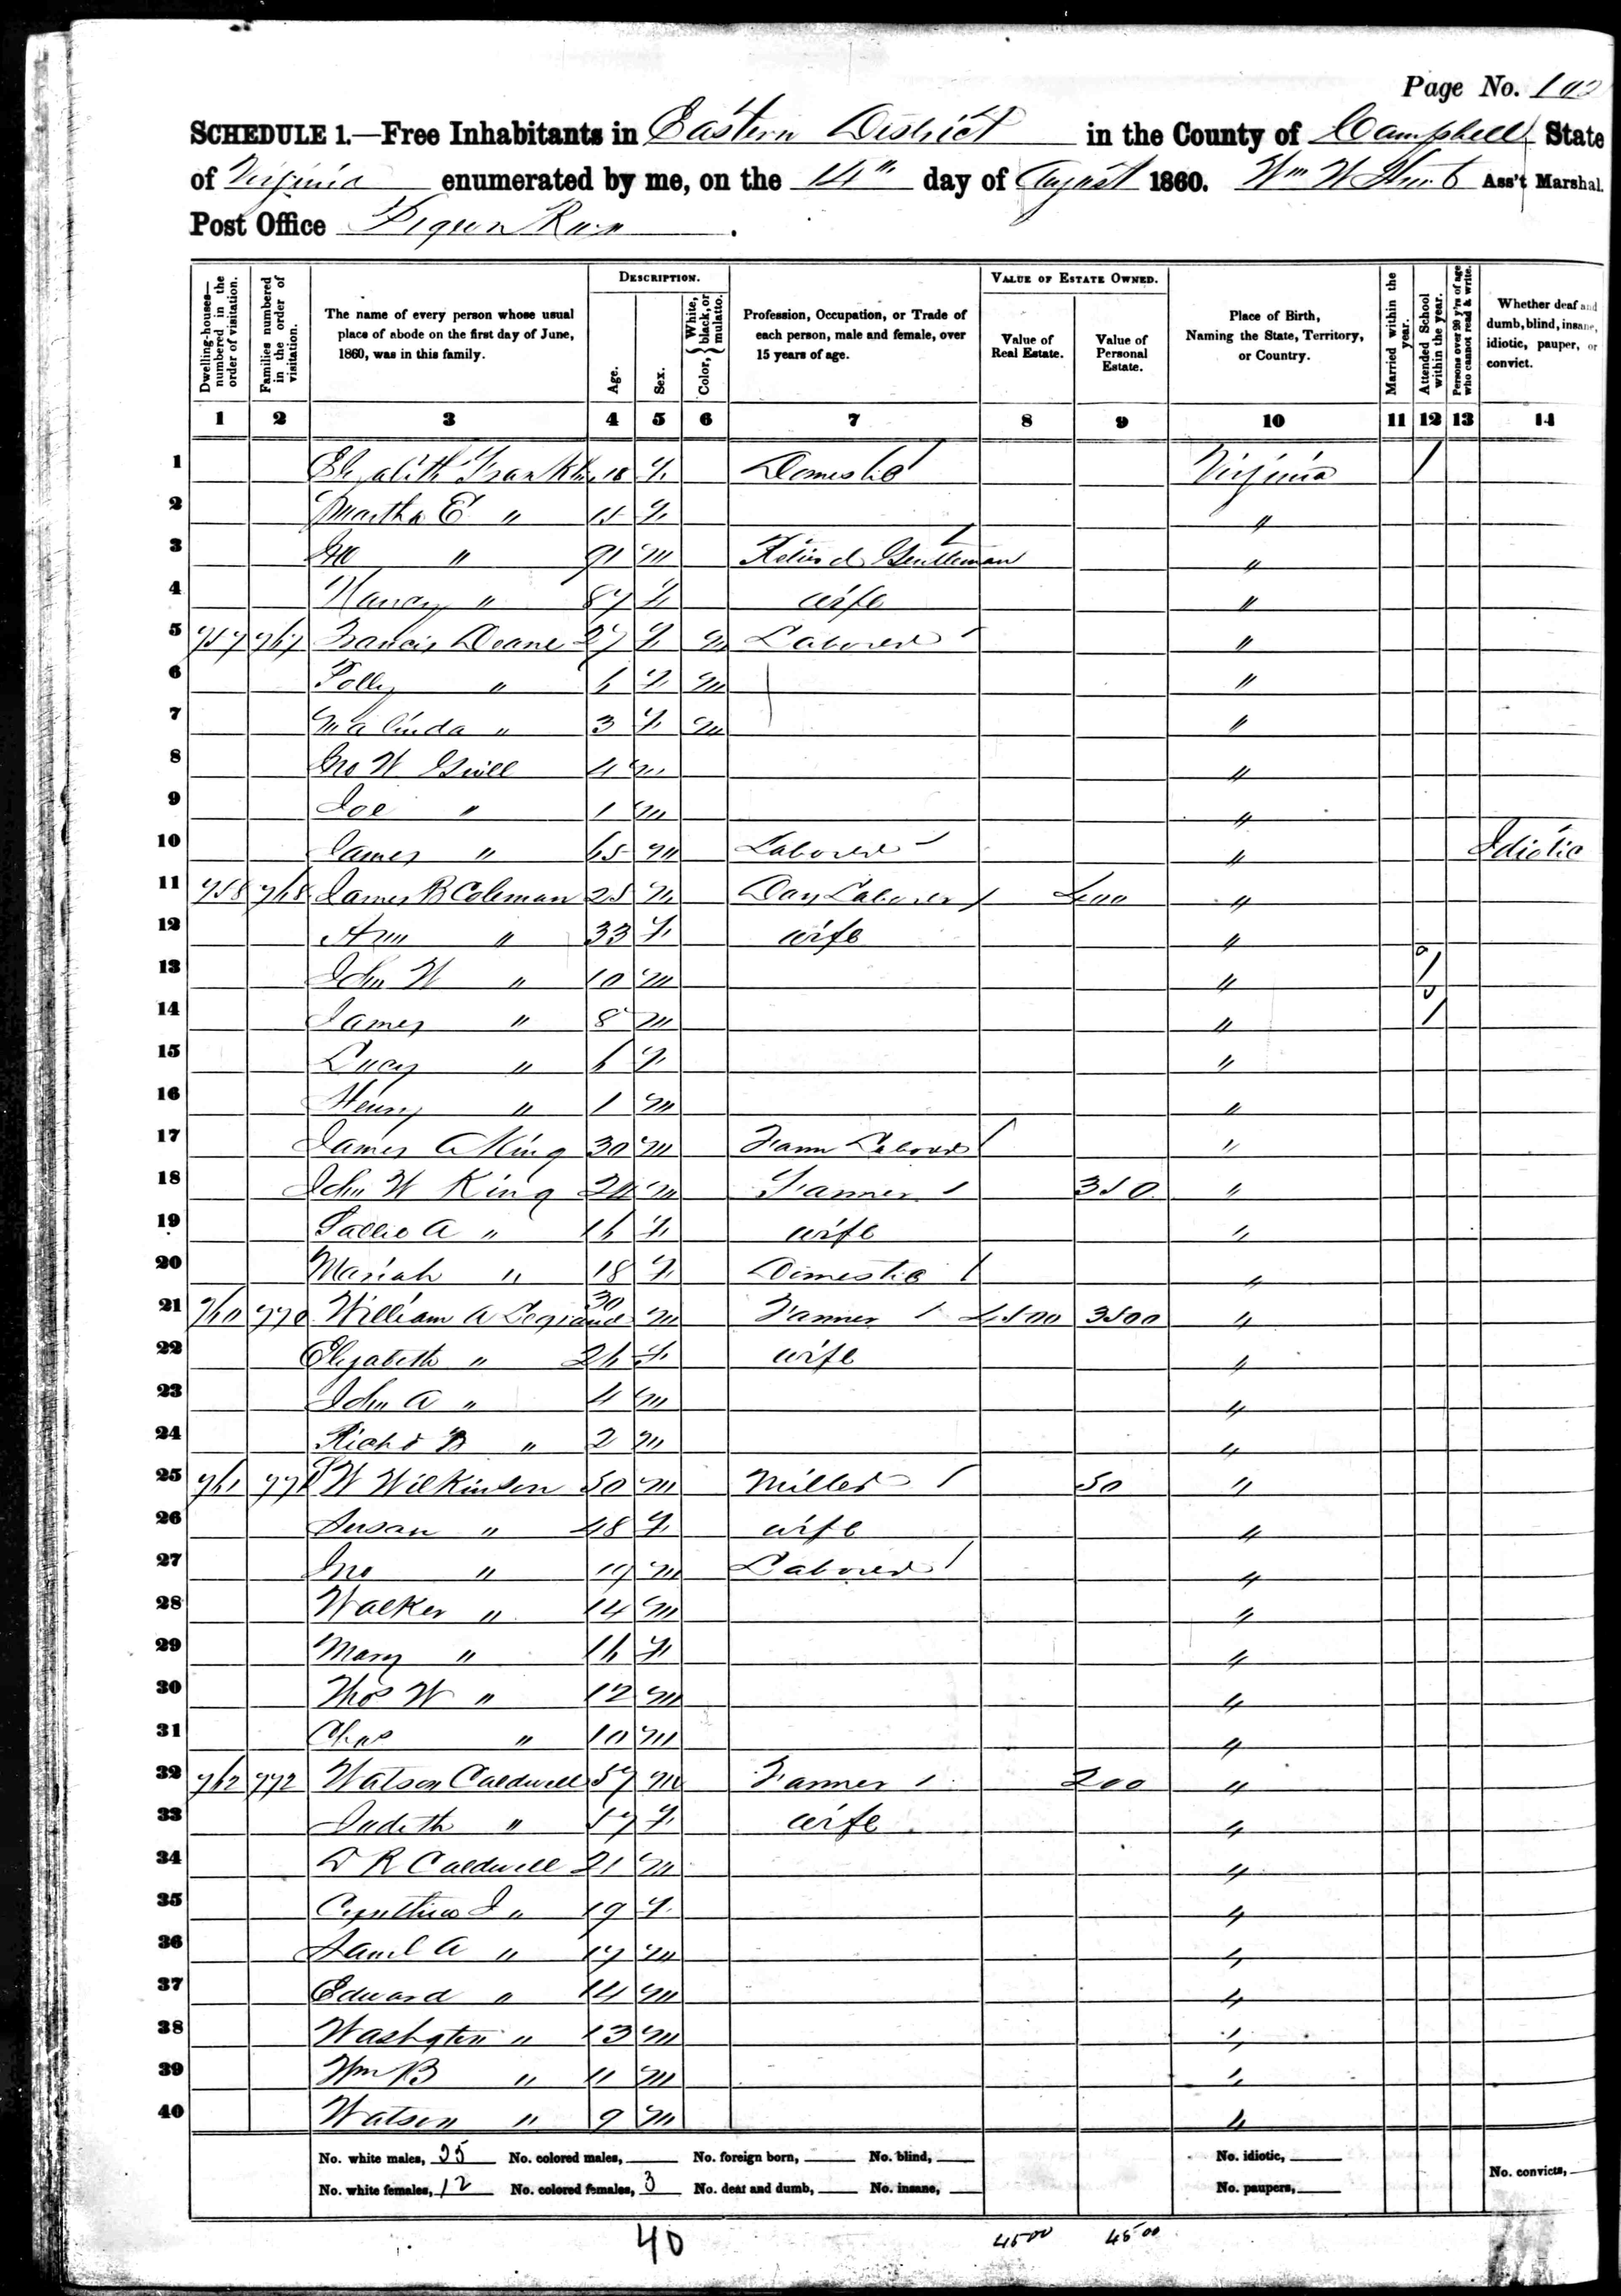 Page No. 102
SCHEDULE 1.—Free Inhabitants in Eastern District in the County of Campbell State
of Virginia enumerated by me, on the 14th day of August 1860. Wm W Ass't Marshal.
Post Office Pigeon Run.
Dwelling-houses—numbered in the order of visitation.
Families numbered in the order of visitation.
The name of every person whose usual place of abode on the first day of June, 1860, was in this family.
DESCRIPTION.
Age.
Sex.
Color, { White, black, or mulatto.
Profession, Occupation, or Trade of each person, male and female, over 15 years of age.
VALUE OF ESTATE OWNED.
Value of Real Estate.
Value of Personal Estate.
Place of Birth, Naming the State, Territory, or Country.
Married within the year.
Attended School within the year.
Persons over 20 y'rs of age who cannot read & write.
Whether deaf and dumb, blind, insane, idiotic, pauper, or convict.
1 2 3 4 5 6 7 8 9 10 11 12 13 14
1 Elizabeth Franklin 18 f Domestic Virginia /
2 Martha E " 15 f "
3 Jno " 91 m Retired Gentleman "
4 Nancy " 87 f wife "
5 757 767 Francis Doane 27 f m Laborer "
6 Polly " 6 f m "
7 Malinda " 3 f m "
8 Jno W 4 m "
9 Joe " 1 m "
10 James " 65 m Laborer " Idiotic
11 758 768 James B Coleman 25 m Day Laborer 400 "
12 Ann " 33 f wife "
13 John W " 10 m " /
14 James " 8 m " /
15 Lucy " 6 f "
16 Henry " 1 m "
17 James A King 30 m Farm Laborer "
18 John W King 24 m Farmer 350 "
19 Sallie A " 16 f wife "
20 Mariah " 18 f Domestic "
21 760 770 William A Legrand 30 m Farmer 4500 3500 "
22 Elizabeth " 26 f wife "
23 John A " 4 m "
24 Richd B " 2 m "
25 761 771 W Wilkinson 50 m Miller 50 "
26 Susan " 48 f wife "
27 Jno " 19 m Laborer "
28 Walker " 14 m "
29 Mary " 16 f "
30 Thos W " 12 m "
31 Chas " 10 m "
32 762 772 Watson Caldwell 57 m Farmer 200 "
33 Judith " 57 f wife "
34 D R Caldwell 21 m "
35 Cynthia J " 19 f "
36 Saml A " 17 m "
37 Edward " 14 m "
38 Washgton " 13 m "
39 Wm B " 11 m "
40 Watson " 9 m "
No. white males, 25 No. colored males, No. foreign born, No. blind, No. idiotic,
No. white females, 12 No. colored females, 3 No. deaf and dumb, No. insane, No. paupers, No. convicts,
40 4500 4500